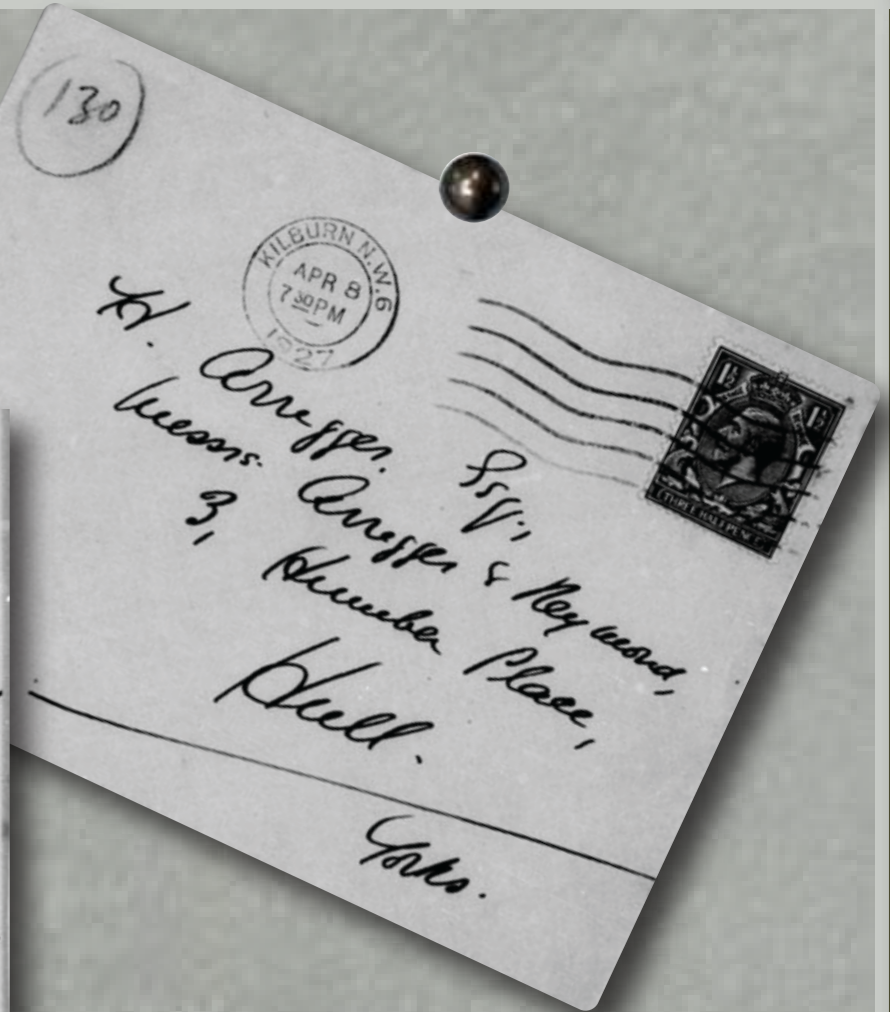 130
KILBURN N.W.6
APR 8
7 30 PM
1927
1½ 1½
THREE HALFPENCE
H. Arregger. Esq.,
Messrs. Arregger & Reymond,
3, Humber Place,
Hull.
Yorks.